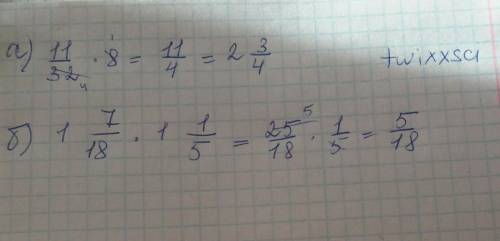 а) 11/32 4 · 8 1 = 11/4 = 2 3/4 twixxsa
б) 1 7/18 · 1 1/5 = 25/18 5 · 1/5 = 5/18